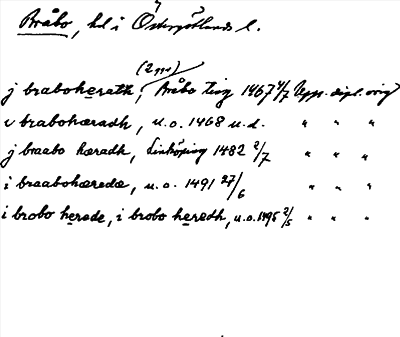 Bråbo, hd i Östergötlands l.
(2 ggr)
j brabohærath, Bråbo ting 1467 4/7 Upps. dipl. orig
v brabohæradh, u.o. 1468 u.d. " " "
j braabo hæradh, Linköping 1482 2/7 " " "
i braabohæredæ, u.o. 1491 27/6 " " "
i brobo herede, i brobo heredh, u.o. 1495 2/5 " " "